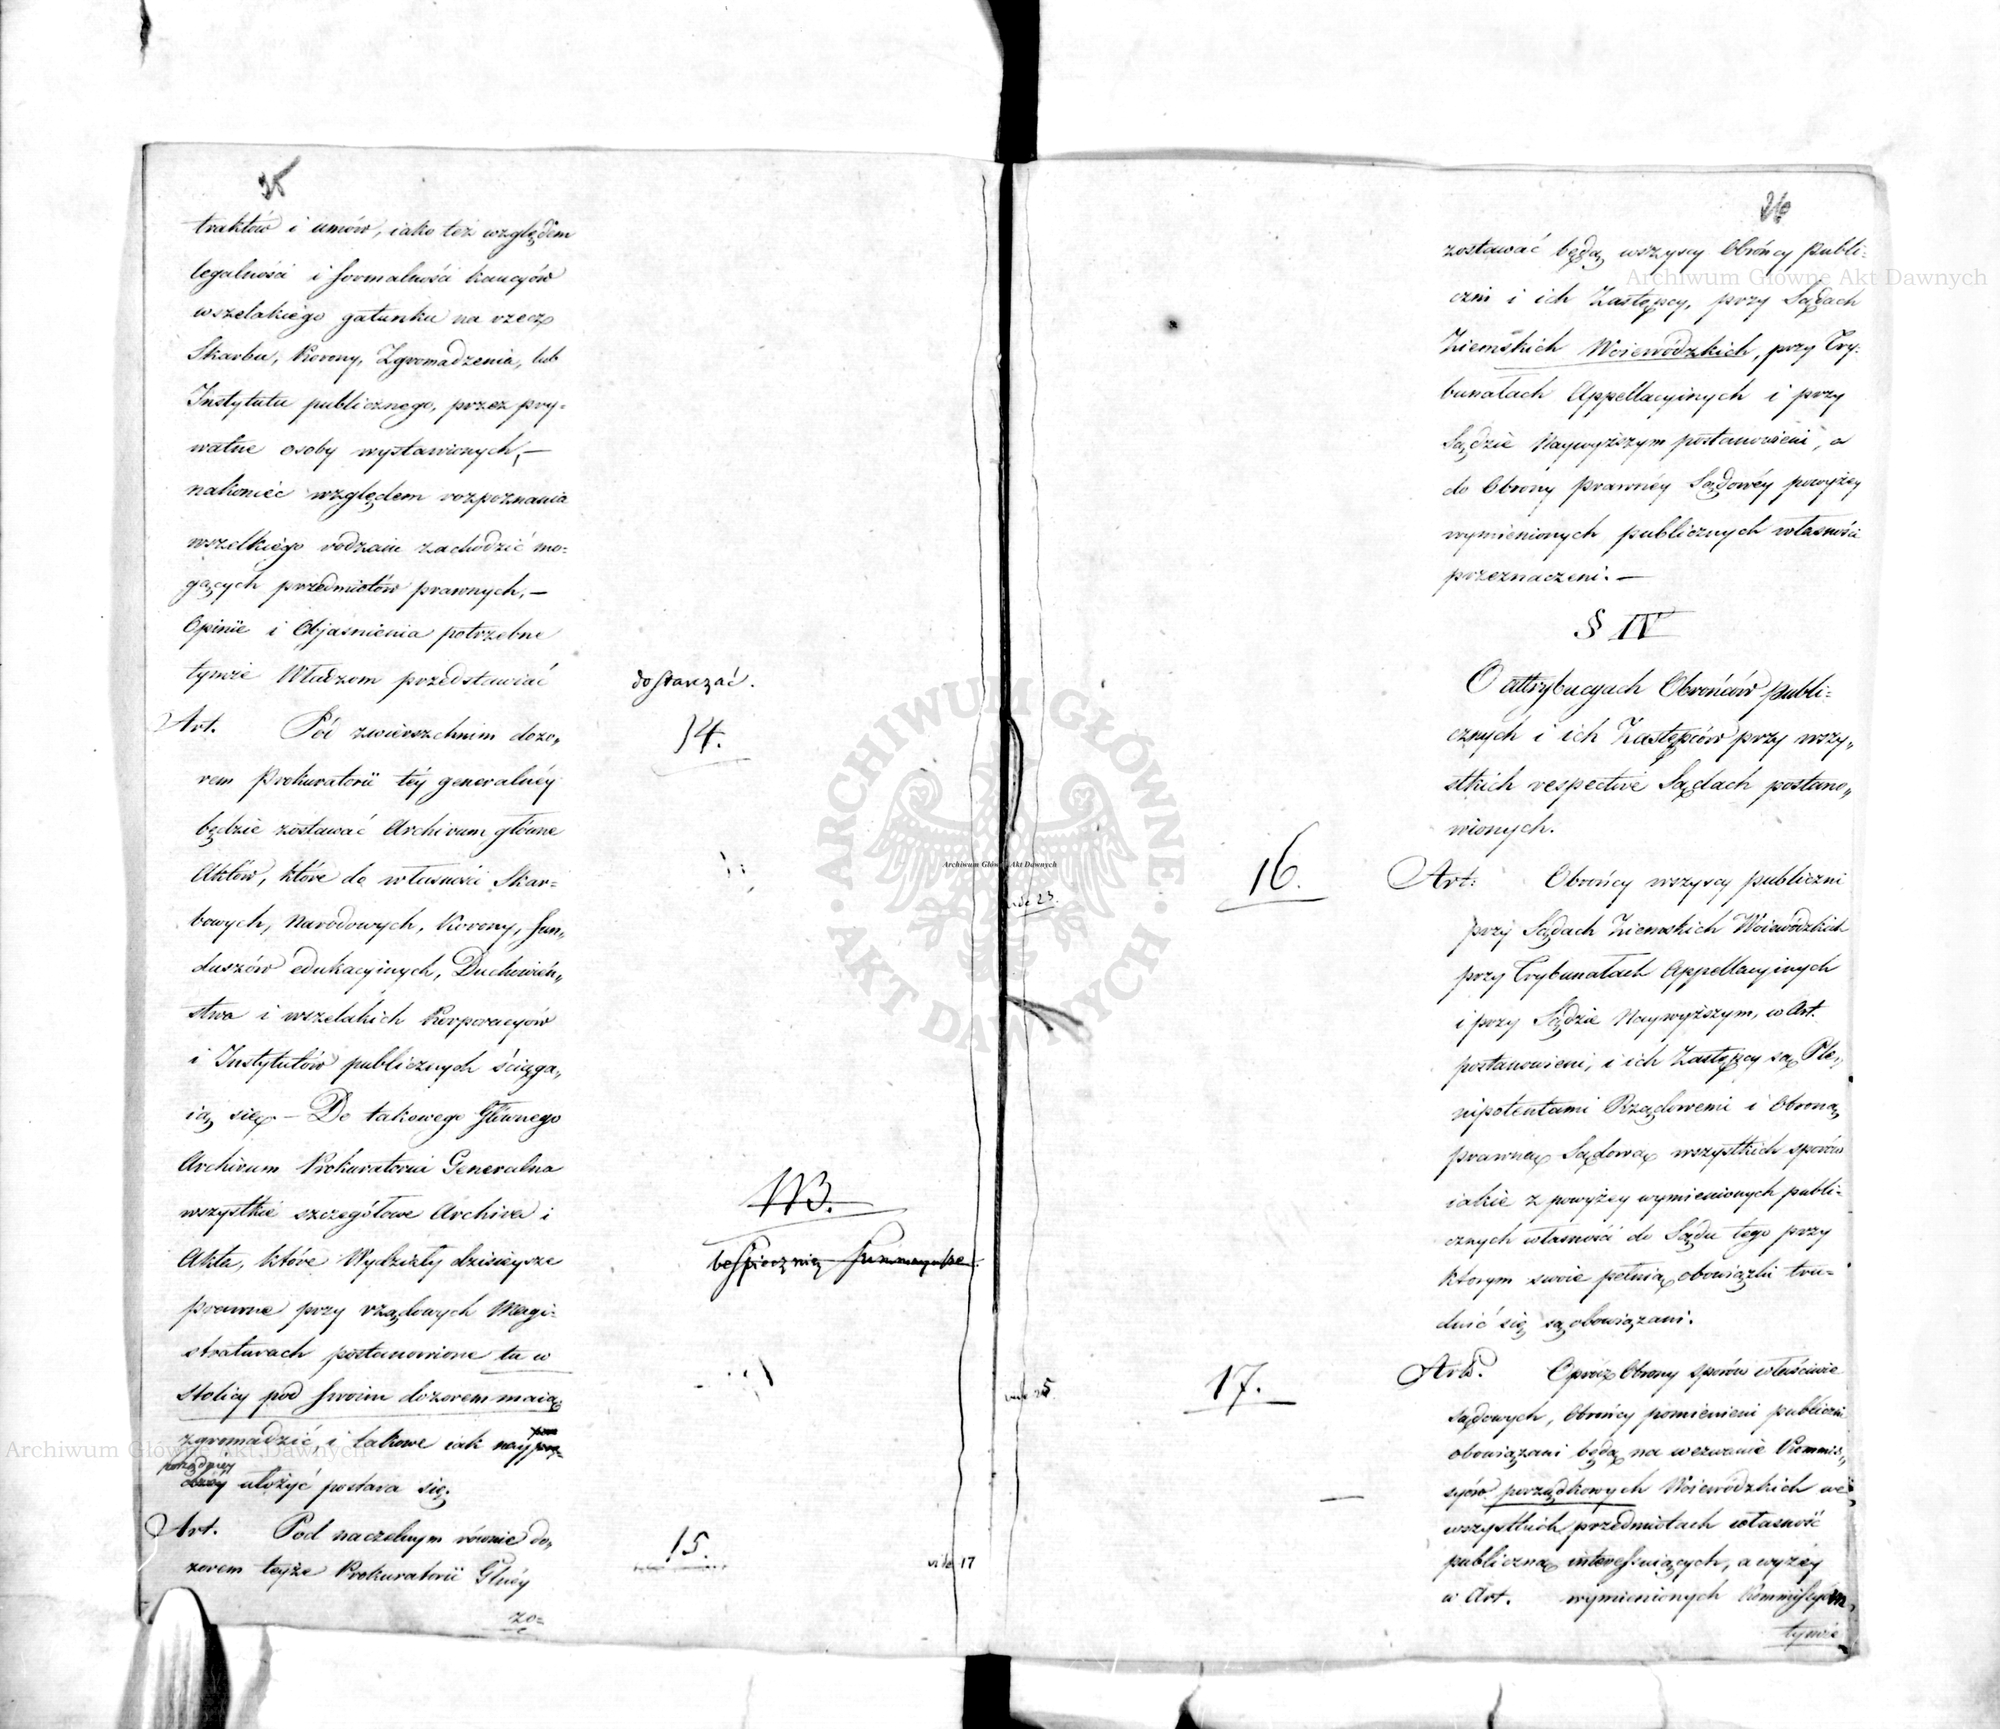 25
traktów i umów, iako też względem
legalności i formalności kaucyów
wszelakiego gatunku na rzecz
Skarbu, Korony, Zgromadzenia, lub
Instytutu publicznego, przez pry-
watne osoby wystawionych, —
nakoniec względem rozpoznania
wszelkiego rodzaiu zachodzić mo-
gących przedmiotów prawnych, —
Opinie i Objasnienia potrzebne
tymże Władzom przedstawiać
dostarczać.
Art. 14. Pod zwierzchnim dozo-
rem Prokuratorii téy generalnéy
będzie zostawać Archivum główne
Aktów, które do własności Skar-
bowych, Narodowych, Korony, fun-
duszów edukacyinych, Duchowień-
stwa i wszelakich Korporacyów
i Instytutów publicznych ściąga-
ią się. — Do takowego Głównego
Archivum Prokuratoria Generalna
wszystkie szczegółowe Archiva i
113.
Akta, które Wydziały dzisieysze
bespieczniey
prawne przy rządowych Magi-
straturach postanowione tu w
stolicy pod swoim dozorem maią
zgromadzić, i takowe iak nay
porządniey
ułożyć postara się.
Art. 15. Pod naczelnym równie do-
vide 17
zorem teyże Prokuratorii Glnéy
zo-
26
zostawać będą wszyscy Obrońcy Publi-
czni i ich Zastępcy, przy Sądach
Ziemskich Woiewódzkich, przy Try-
bunałach Appellacyinych i przy
Sądzie Naywyższym postanowieni, a
do Obrony Prawnéy Sądowéy powyżey
wymienionych publicznych własności
przeznaczeni. —
§ IV
O attrybucyach Obrońców publi-
cznych i ich Zastępców przy wszy-
stkich respective Sądach postano-
wionych.
vide 23.
16. Art. Obrońcy wszyscy publiczni
przy Sądach Ziemskich Woiewódzkich
przy Trybunałach Appellacyinych
i przy Sądzie Naywyższym, w Art.
postanowieni, i ich Zastępcy są Ple-
nipotentami Rządowemi i Obroną
prawną Sądową wszystkich sporów
iakie z powyżey wymienionych publi-
cznych własności do Sądu tego przy
którym swoie pełnią obowiązki tru-
dnić się są obowiązani.
vide 25.
17. Art. Oprócz Obrony sporów właściwie
sądowych, Obrońcy pomienieni publiczni
obowiązani będą na wezwanie Kommis-
syów porządkowych Woiewódzkich we
wszystkich przedmiotach własność
publiczną interessuiących, a wyżéy
w Art. wymienionych Kommissyom,
tymże
Archiwum Główne Akt Dawnych
Archiwum Główne Akt Dawnych
Archiwum Główne Akt Dawnych
ARCHIWUM GŁÓWNE AKT DAWNYCH